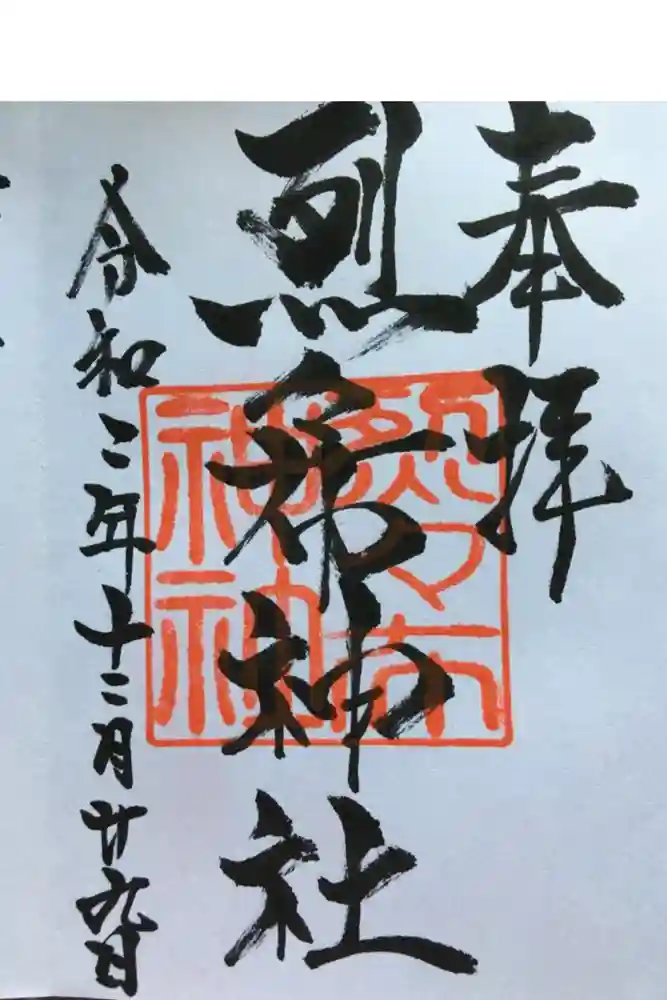 奉拝
烈々布神社
令和二年十二月廿九日
烈々布
神社